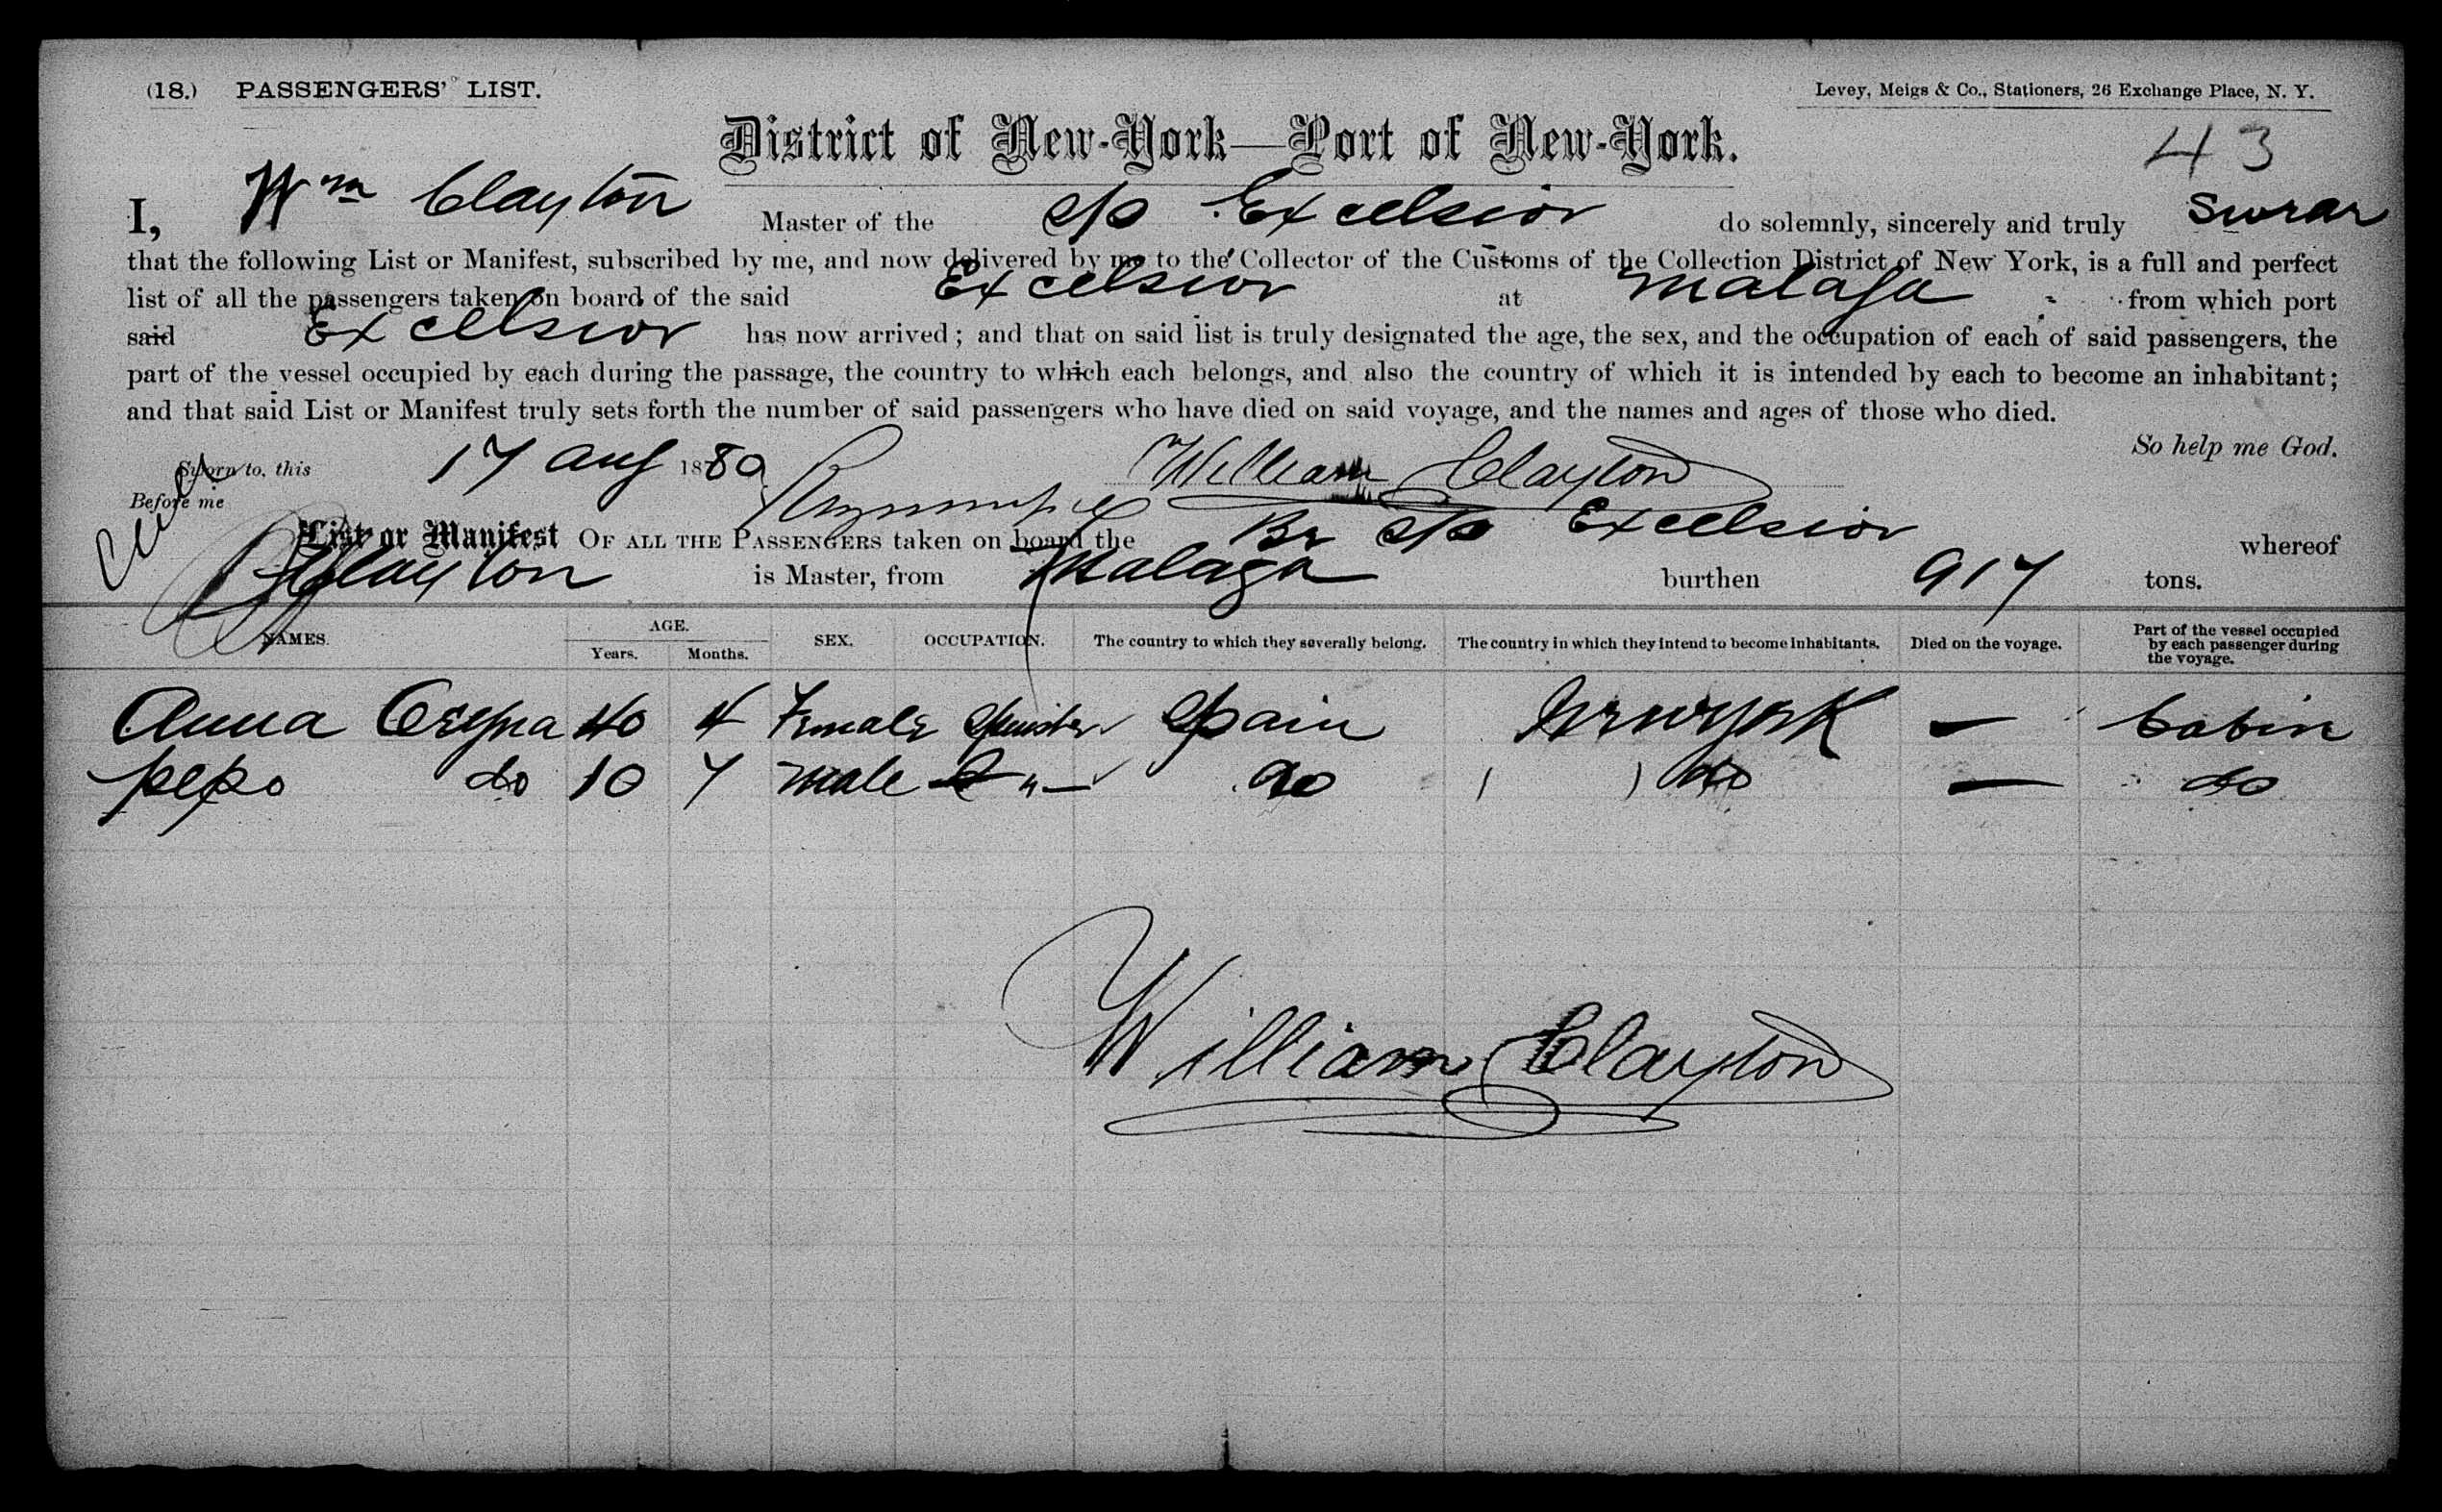 (18.) PASSENGERS' LIST.
Levey, Meigs & Co., Stationers, 26 Exchange Place, N. Y.
District of New-York—Port of New-York.
43
I, Wm Clayton Master of the S/S Excelsior do solemnly, sincerely and truly Swear
that the following List or Manifest, subscribed by me, and now delivered by me to the Collector of the Customs of the Collection District of New York, is a full and perfect
list of all the passengers taken on board of the said Excelsior at Malaga from which port
said Excelsior has now arrived; and that on said list is truly designated the age, the sex, and the occupation of each of said passengers, the
part of the vessel occupied by each during the passage, the country to which each belongs, and also the country of which it is intended by each to become an inhabitant;
and that said List or Manifest truly sets forth the number of said passengers who have died on said voyage, and the names and ages of those who died.
So help me God.
Sworn to, this 17 Aug 1880 William Clayton
Before me
List or Manifest OF ALL THE PASSENGERS taken on board the Br S/S Excelsior whereof
Clayton is Master, from Malaga burthen 917 tons.
NAMES. AGE. Years. Months. SEX. OCCUPATION. The country to which they severally belong. The country in which they intend to become inhabitants. Died on the voyage. Part of the vessel occupied by each passenger during the voyage.
Anna 40 4 Female Spinster Spain New York — Cabin
pepo do 10 7 male " — do do — do
William Clayton